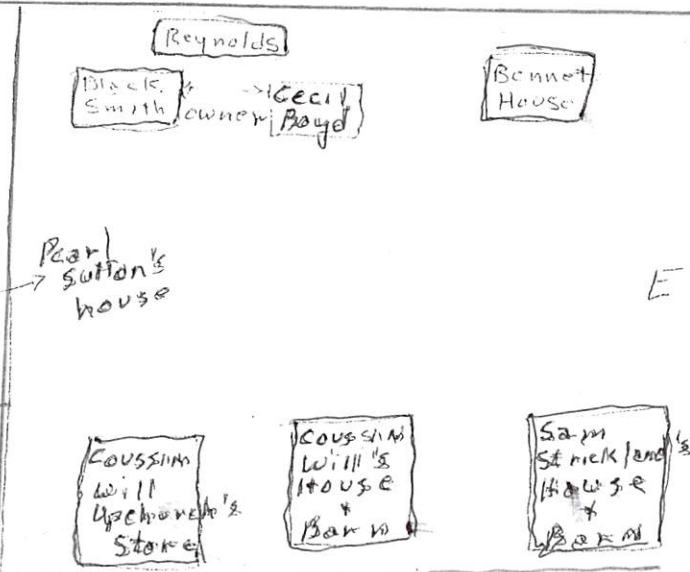 Reynolds
Black
Smith
owner
Cecil
Boyd
Bennet
House
Pearl
Sutton's
house
E
Coussin
Will
Upchurch's
Store
Coussin
Will's
House
*
Barn
Sam
Strickland's
House
*
Barn